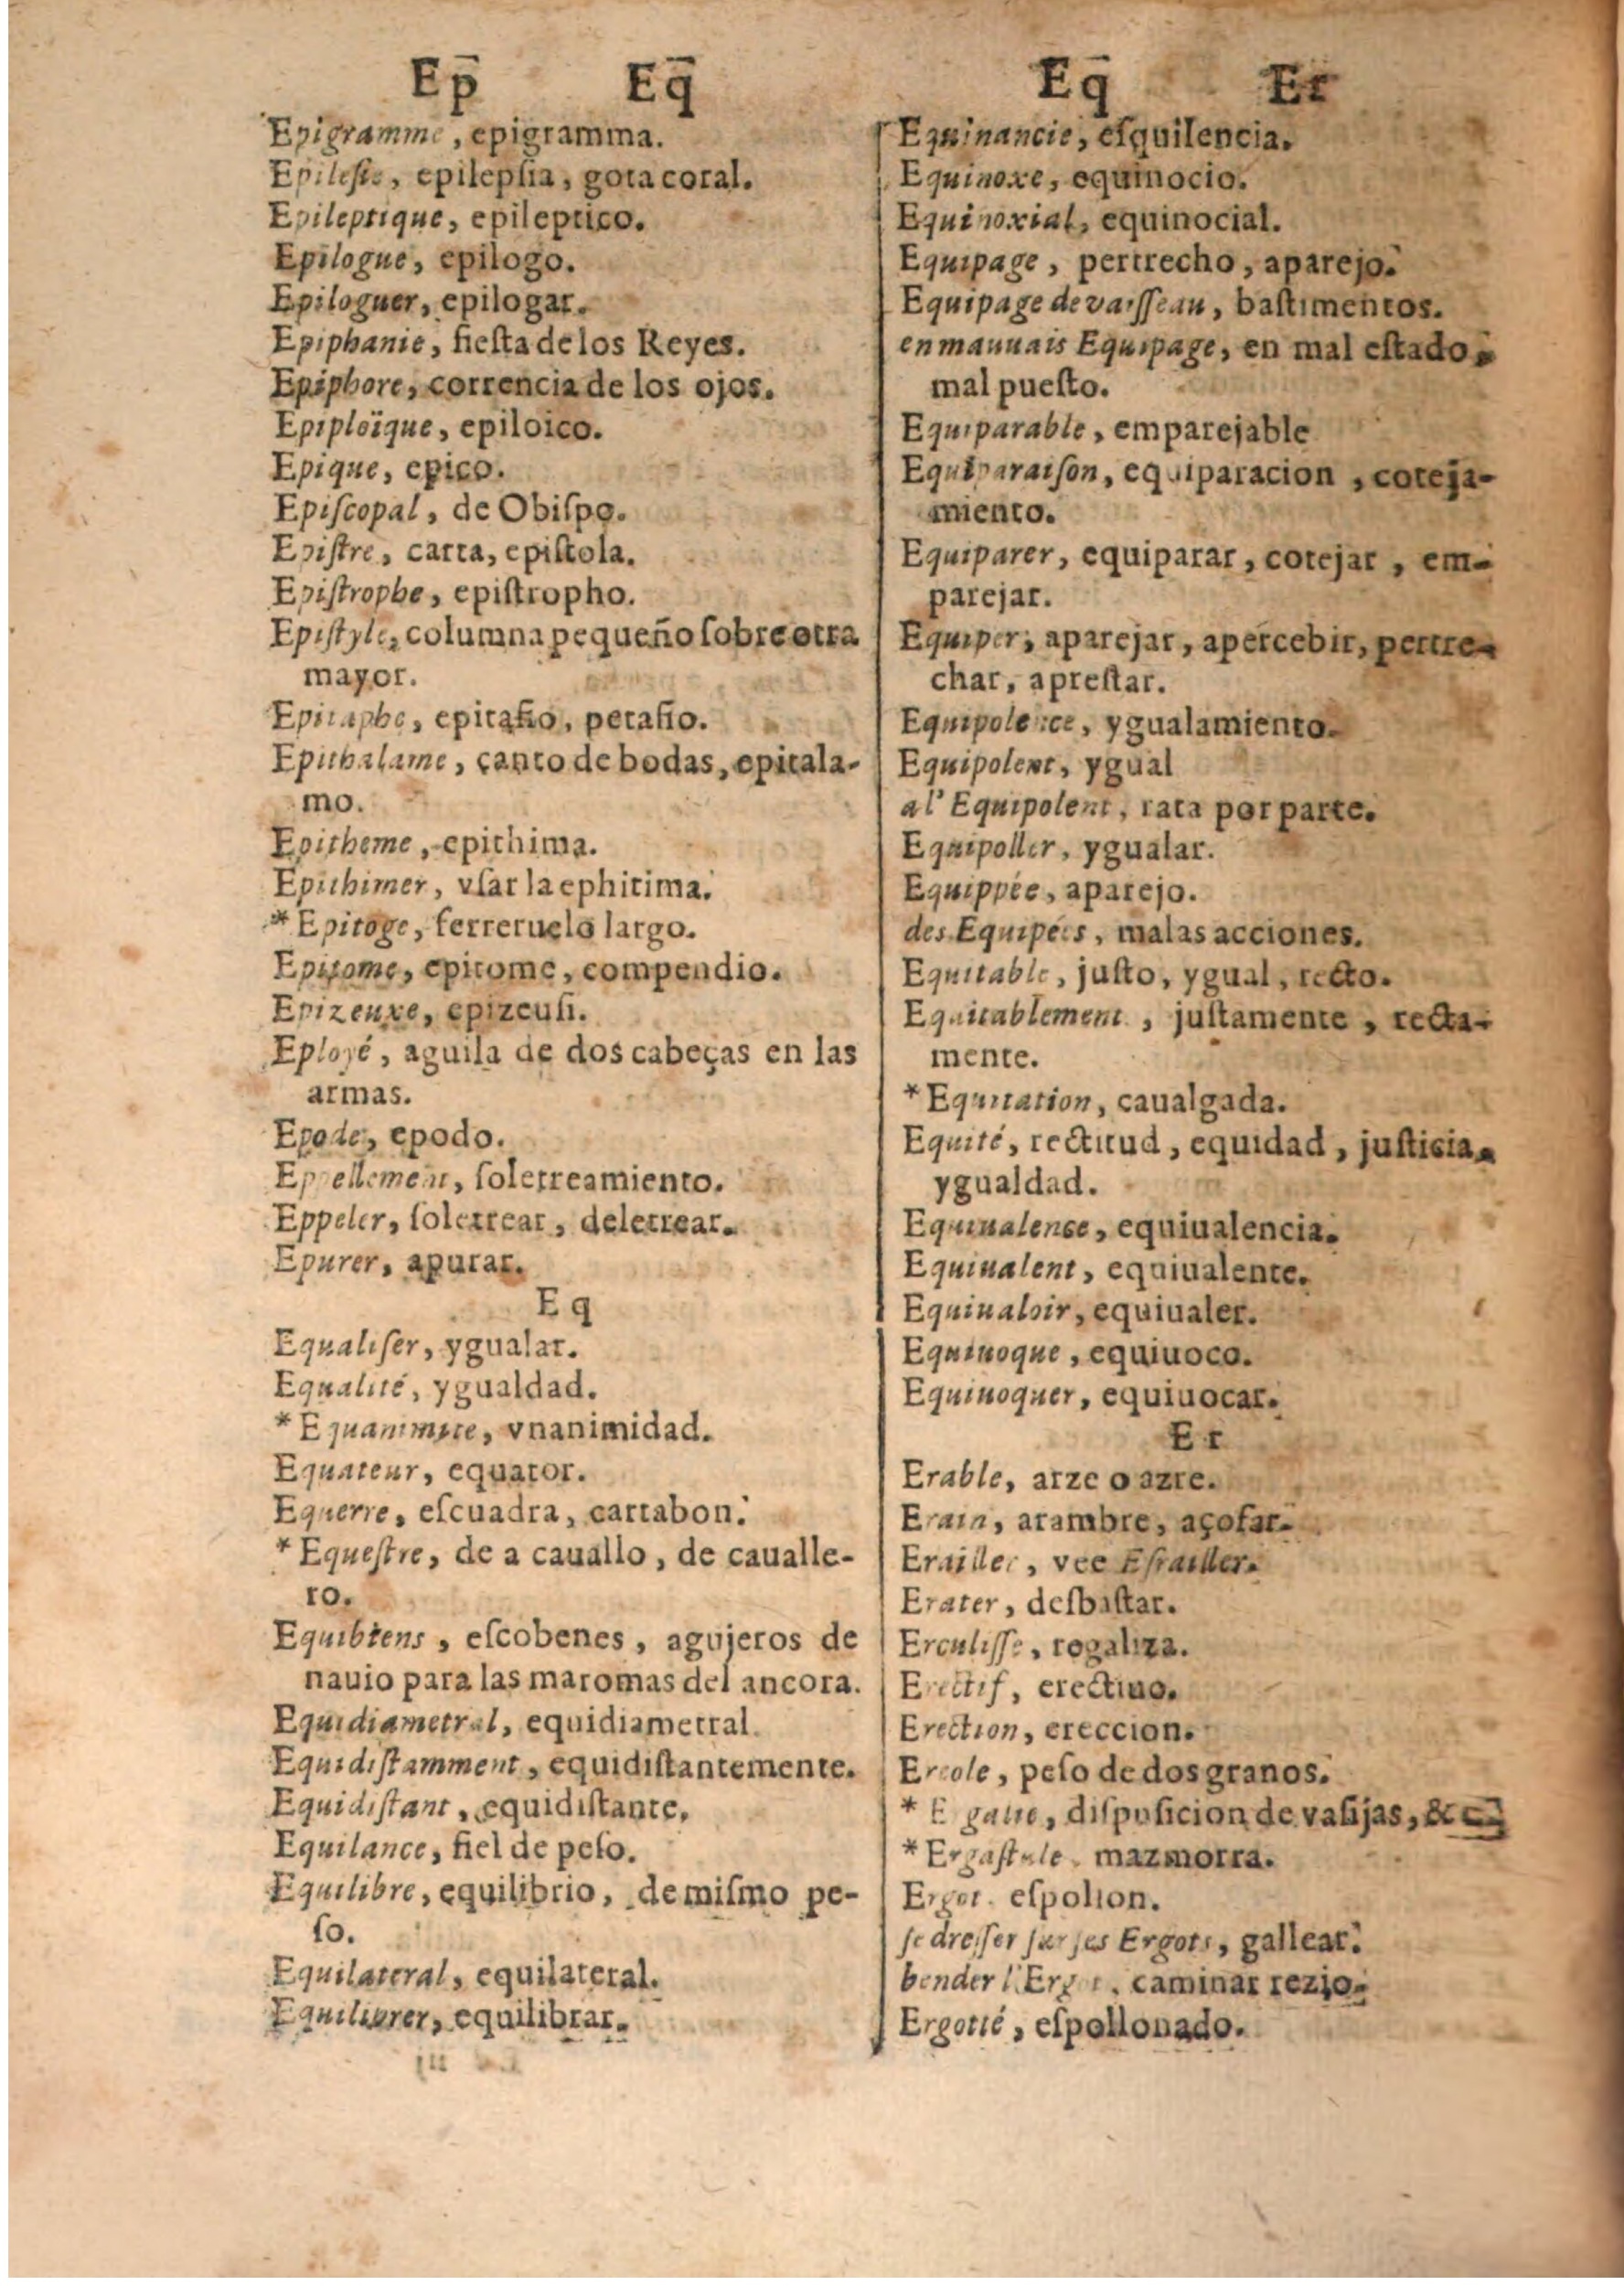 Ep̄ Eq̄
Epigramme, epigramma.
Epilesie, epilepſia, gota coral.
Epileptique, epileptico.
Epilogue, epilogo.
Epiloguer, epilogar.
Epiphanie, fieſta de los Reyes.
Epiphore, correncia de los ojos.
Epiploïque, epiloico.
Epique, epico.
Epiſcopal, de Obiſpo.
Epiſtre, carta, epiſtola.
Epiſtrophe, epiſtropho.
Epiſtyle, columna pequeño ſobre otra
mayor.
Epitaphe, epitafio, petafio.
Epithalame, canto de bodas, epitala-
mo.
Epitheme, epithima.
Epithimer, vſar la ephitima.
*Epitoge, ferreruelo largo.
Epitome, epitome, compendio.
Epizeuxe, epizeuſi.
Eployé, aguila de dos cabeças en las
armas.
Epode, epodo.
Eppellement, ſoletreamiento.
Eppeler, ſoletrear, deletrear.
Epurer, apurar.
Eq
Equaliſer, ygualar.
Equalité, ygualdad.
*Equanimite, vnanimidad.
Equateur, equator.
Equerre, eſcuadra, cartabon.
*Equeſtre, de a cauallo, de caualle-
ro.
Equibiens, eſcobenes, agujeros de
nauio para las maromas del ancora.
Equidiametral, equidiametral.
Equidiſtamment, equidiſtantemente.
Equidiſtant, equidiſtante.
Equilance, fiel de peſo.
Equilibre, equilibrio, de miſmo pe-
ſo.
Equilateral, equilateral.
Equilibrer, equilibrar.
Eq̄ Er
Equinancie, eſquilencia.
Equinoxe, equinocio.
Equinoxial, equinocial.
Equipage, pertrecho, aparejo.
Equipage de vaiſſeau, baſtimentos.
en mauuais Equipage, en mal eſtado,
mal pueſto.
Equiparable, emparejable
Equiparaiſon, equiparacion, coteja-
miento.
Equiparer, equiparar, cotejar, em-
parejar.
Equiper, aparejar, apercebir, pertre-
char, apreſtar.
Equipolence, ygualamiento.
Equipolent, ygual
a l'Equipolent, rata por parte.
Equipoller, ygualar.
Equippée, aparejo.
des Equipées, malas acciones.
Equitable, juſto, ygual, recto.
Equitablement, juſtamente, recta-
mente.
*Equitation, caualgada.
Equité, rectitud, equidad, juſticia,
ygualdad.
Equiualence, equiualencia.
Equiualent, equiualente.
Equiualoir, equiualer.
Equiuoque, equiuoco.
Equiuoquer, equiuocar.
Er
Erable, arze o azre.
Erain, arambre, açofar.
Erailler, vee Eſrailler.
Erater, deſbaſtar.
Erculiſſe, regaliza.
Erectif, erectiuo.
Erection, ereccion.
Ereole, peſo de dos granos.
* diſpoſicion de vaſijas, &c.
*Ergaſtule, mazmorra.
Ergot, eſpolion.
ſe dreſſer ſur ſes Ergots, gallear.
bender l'Ergot, caminar rezio.
Ergotté, eſpollonado.